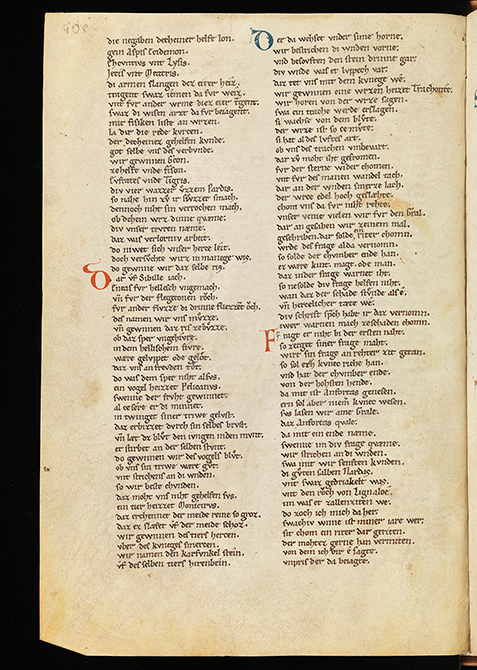 die negaben decheiner helfe lon.
gein aspis Ecidemon.
Ehcvntivs vnt Lysis.
Jecis vnt Meatris.
di armen slangen dez eiter heiz.
tragent swaz iemen da fvr weiz.
vnt fvr ander wrme diez eiter tragent.
swaz di wisen arzt da fvr beiagent.
mit fisiken liste an wrzen.
la dir die rede kvrcen.
der decheiner gehelfen kvnde.
got selbe vns des verbvnde.
wir gewnnen Geon.
ze helfe vnde fison.
Evfrates vnde Tigris.
div vier wazzer vzzem pardis.
so nahe hin zv ir svzzer smach.
dennoch niht sin verrochen mach.
ob dehein wrz dinne qveme:
div vnser trvren neme:
daz was verlorniv arbeit.
do niwet sich vnser herce leit.
doch versvchte wirz in manege wis.
do gewnne wir daz selbe ris.
Dar vf Sibille iach.
Eneas fvr hellesch vngemach.
vn fvr der flegetonen roch.
fvr ander flvzze di drinne fliezzet och.
des namen wir vns mvzze.
vn gewnnen daz ris ze bvzze.
ob daz sper vngehivre.
in dem hellischem fivre.
were gelvppet ode gelot.
daz vns an frevden tot.
do was dem sper niht alsvs.
ein vogel heizzet Pelicanvs.
swenne der frvht gewinnet.
al ze sere er di minnet.
in twinget siner triwe gelvst.
daz er bizzet dvrch sin selbes brvst.
vn lat dz blvt den ivngen inden mvnt.
er stirbet an der selben stvnt.
do gewnnen wir des vogels blvt.
ob vns sin triwe were gvt.
vnt strichens an di wnden.
so wir beste chvnden.
daz moht vns niht gehelfen svs.
ein tier heizzet Monicirvs.
daz erchennet der meide reine so groz.
daz ez slafet vf der meide schoz.
wir gewnnen des tiers hercen.
vber des kvneges smercen.
wir namen den karfvnkel stein.
vf des selben tiers hirenbein.
Der da wehset vnder sime horne.
wir bestrichen di wnden vorne:
vnd besovften den stein drinne gar.
div wnde was et lvppech var.
daz tet vns mit dem kvnege we.
wir gewnnen eine wrzen heizet Trachonte:
wir horen von der wrze sagen.
swa ein trache werde erslagen.
si wachse von dem blvte.
der wrze ist so ce mvte:
si hat al des lvftes art.
ob vns des trachen vmbevart.
dar zv moht iht gefromen.
fvr der sterne wider chomen.
vnt fvr des manen wandel tach.
dar an der wnden smerze lach.
der wrce edel hoch geslæhte.
chom vns da fvr niht rehte.
vnser venie vielen wir fvr den Gral.
dar an gesahen wir zeinem mal.
geschriben. dar solde ein riter chomen.
wrde des frage alda vernomn.
so solde der chvmber ende han.
ez were kint. magt. ode man.
daz in der frage warnet iht.
so ne solde div frage helfen niht.
wan daz der schade stvnde als e.
vn hercelicher tæte we:
div schrift sprach habt ir daz vernomn.
iwer warnen mach ze schaden chomn.
Fragt er niht bi der ersten naht.
so zerget siner frage maht.
wirt sin frage an rehter zit getan.
so sol erz kvnecriche han.
vnd hat der chvmber ende.
von der hohsten hende.
da mit ist Anfortas genesen.
ern sol aber niemer kvnec wesen.
svs lasen wir ame Grale.
daz Anfortas qvale:
da mit ein ende name.
swenne im div frage qvame.
wir strichen an di wnden.
swa mit wir senften kvnden.
di gvten salben Nardas.
vnt swaz gedriakelt was.
vnt den roch von Lignaloe.
im was et zallenziten we:
do zoch ich mich da her.
swachiv wnne ist miner iare wer.
sit chom ein riter dar geriten.
der mohtez gerne han vermiten.
von dem ich dir e sagte.
vnpris der da beiagte.